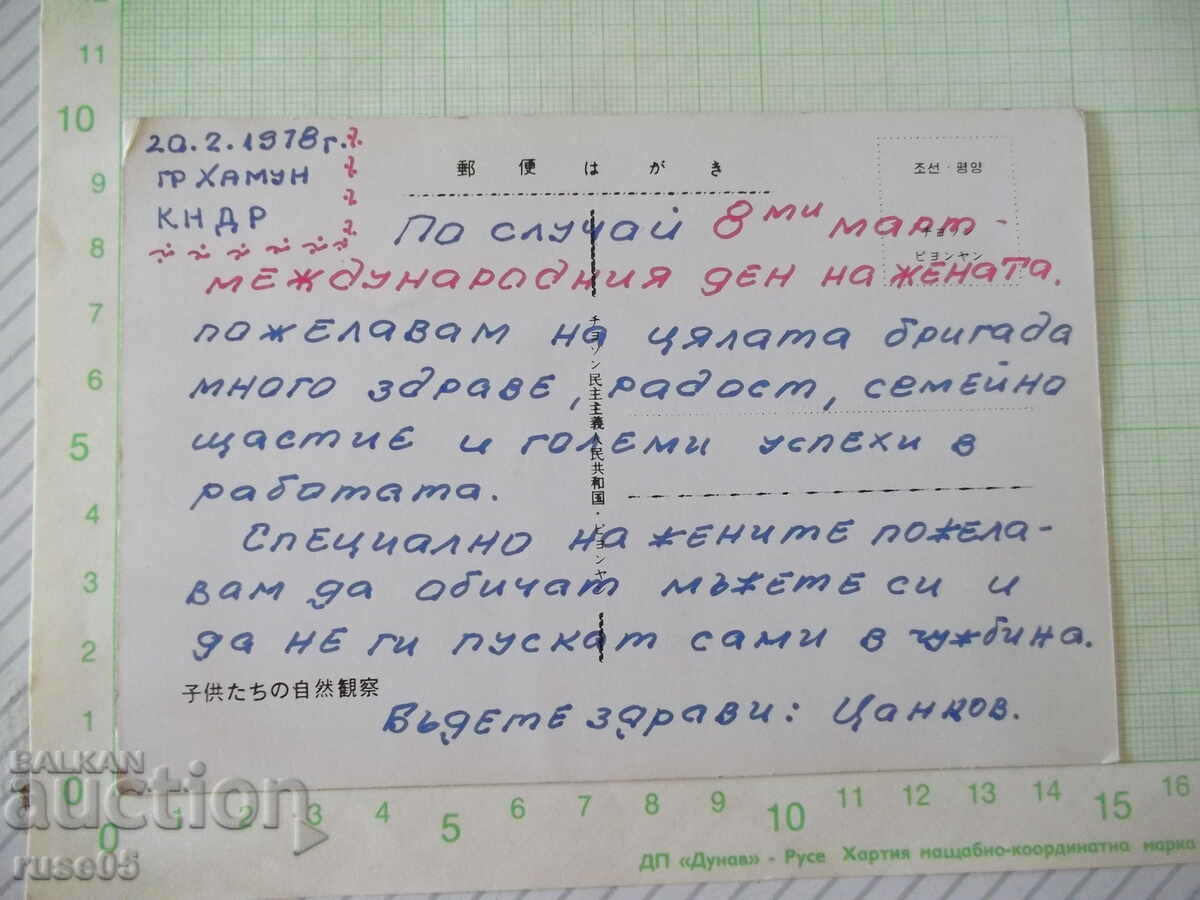 20.2.1978г.
ГР ХАМУН
КНДР
郵便はがき
조선·평양
チョソン
ピョンヤン
По случай 8ми март -
международния ден на жената.
пожелавам на цялата бригада
много здраве, радост, семейно
щастие и големи успехи в
работата.
Специално на жените пожела-
вам да обичат мъжете си и
да не ги пускат сами в чужбина.
Бъдете здрави: Цанков.
チョソン民主主義人民共和国·ピョンヤン
子供たちの自然観察
11
10
9
8
7
6
5
4
3
2
1
0
0 1 2 3 4 5 6 7 8 9 10 11 12 13 14 15 16
ДП «Дунав» - Русе Хартия мащабно-координатна марка
BALKAN
auction
ruse05